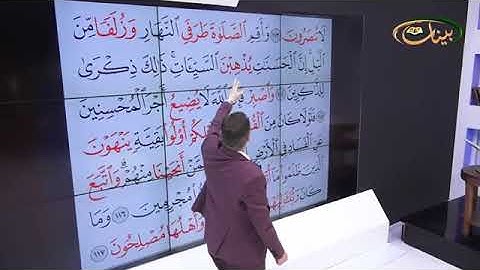 بينات
لَا تُنصَرُونَ ١١٣ وَأَقِمِ ٱلصَّلَوٰةَ طَرَفَيِ ٱلنَّهَارِ وَزُلَفًا مِّنَ
ٱلَّيْلِ إِنَّ ٱلْحَسَنَٰتِ يُذْهِبْنَ ٱلسَّيِّـَٔاتِ ذَٰلِكَ ذِكْرَىٰ
لِلذَّٰكِرِينَ ١١٤ وَٱصْبِرْ فَإِنَّ ٱللَّهَ لَا يُضِيعُ أَجْرَ ٱلْمُحْسِنِينَ
١١٥ فَلَوْلَا كَانَ مِنَ أُو۟لُوا۟ بَقِيَّةٍ يَنْهَوْنَ
عَنِ ٱلْفَسَادِ فِي ٱلْأَرْضِ أَنجَيْنَا مِنْهُمْ وَٱتَّبَعَ
ٱلَّذِينَ ظَلَمُوا۟ مُجْرِمِينَ ١١٦ وَمَا
كَانَ رَبُّكَ وَأَهْلُهَا مُصْلِحُونَ ١١٧